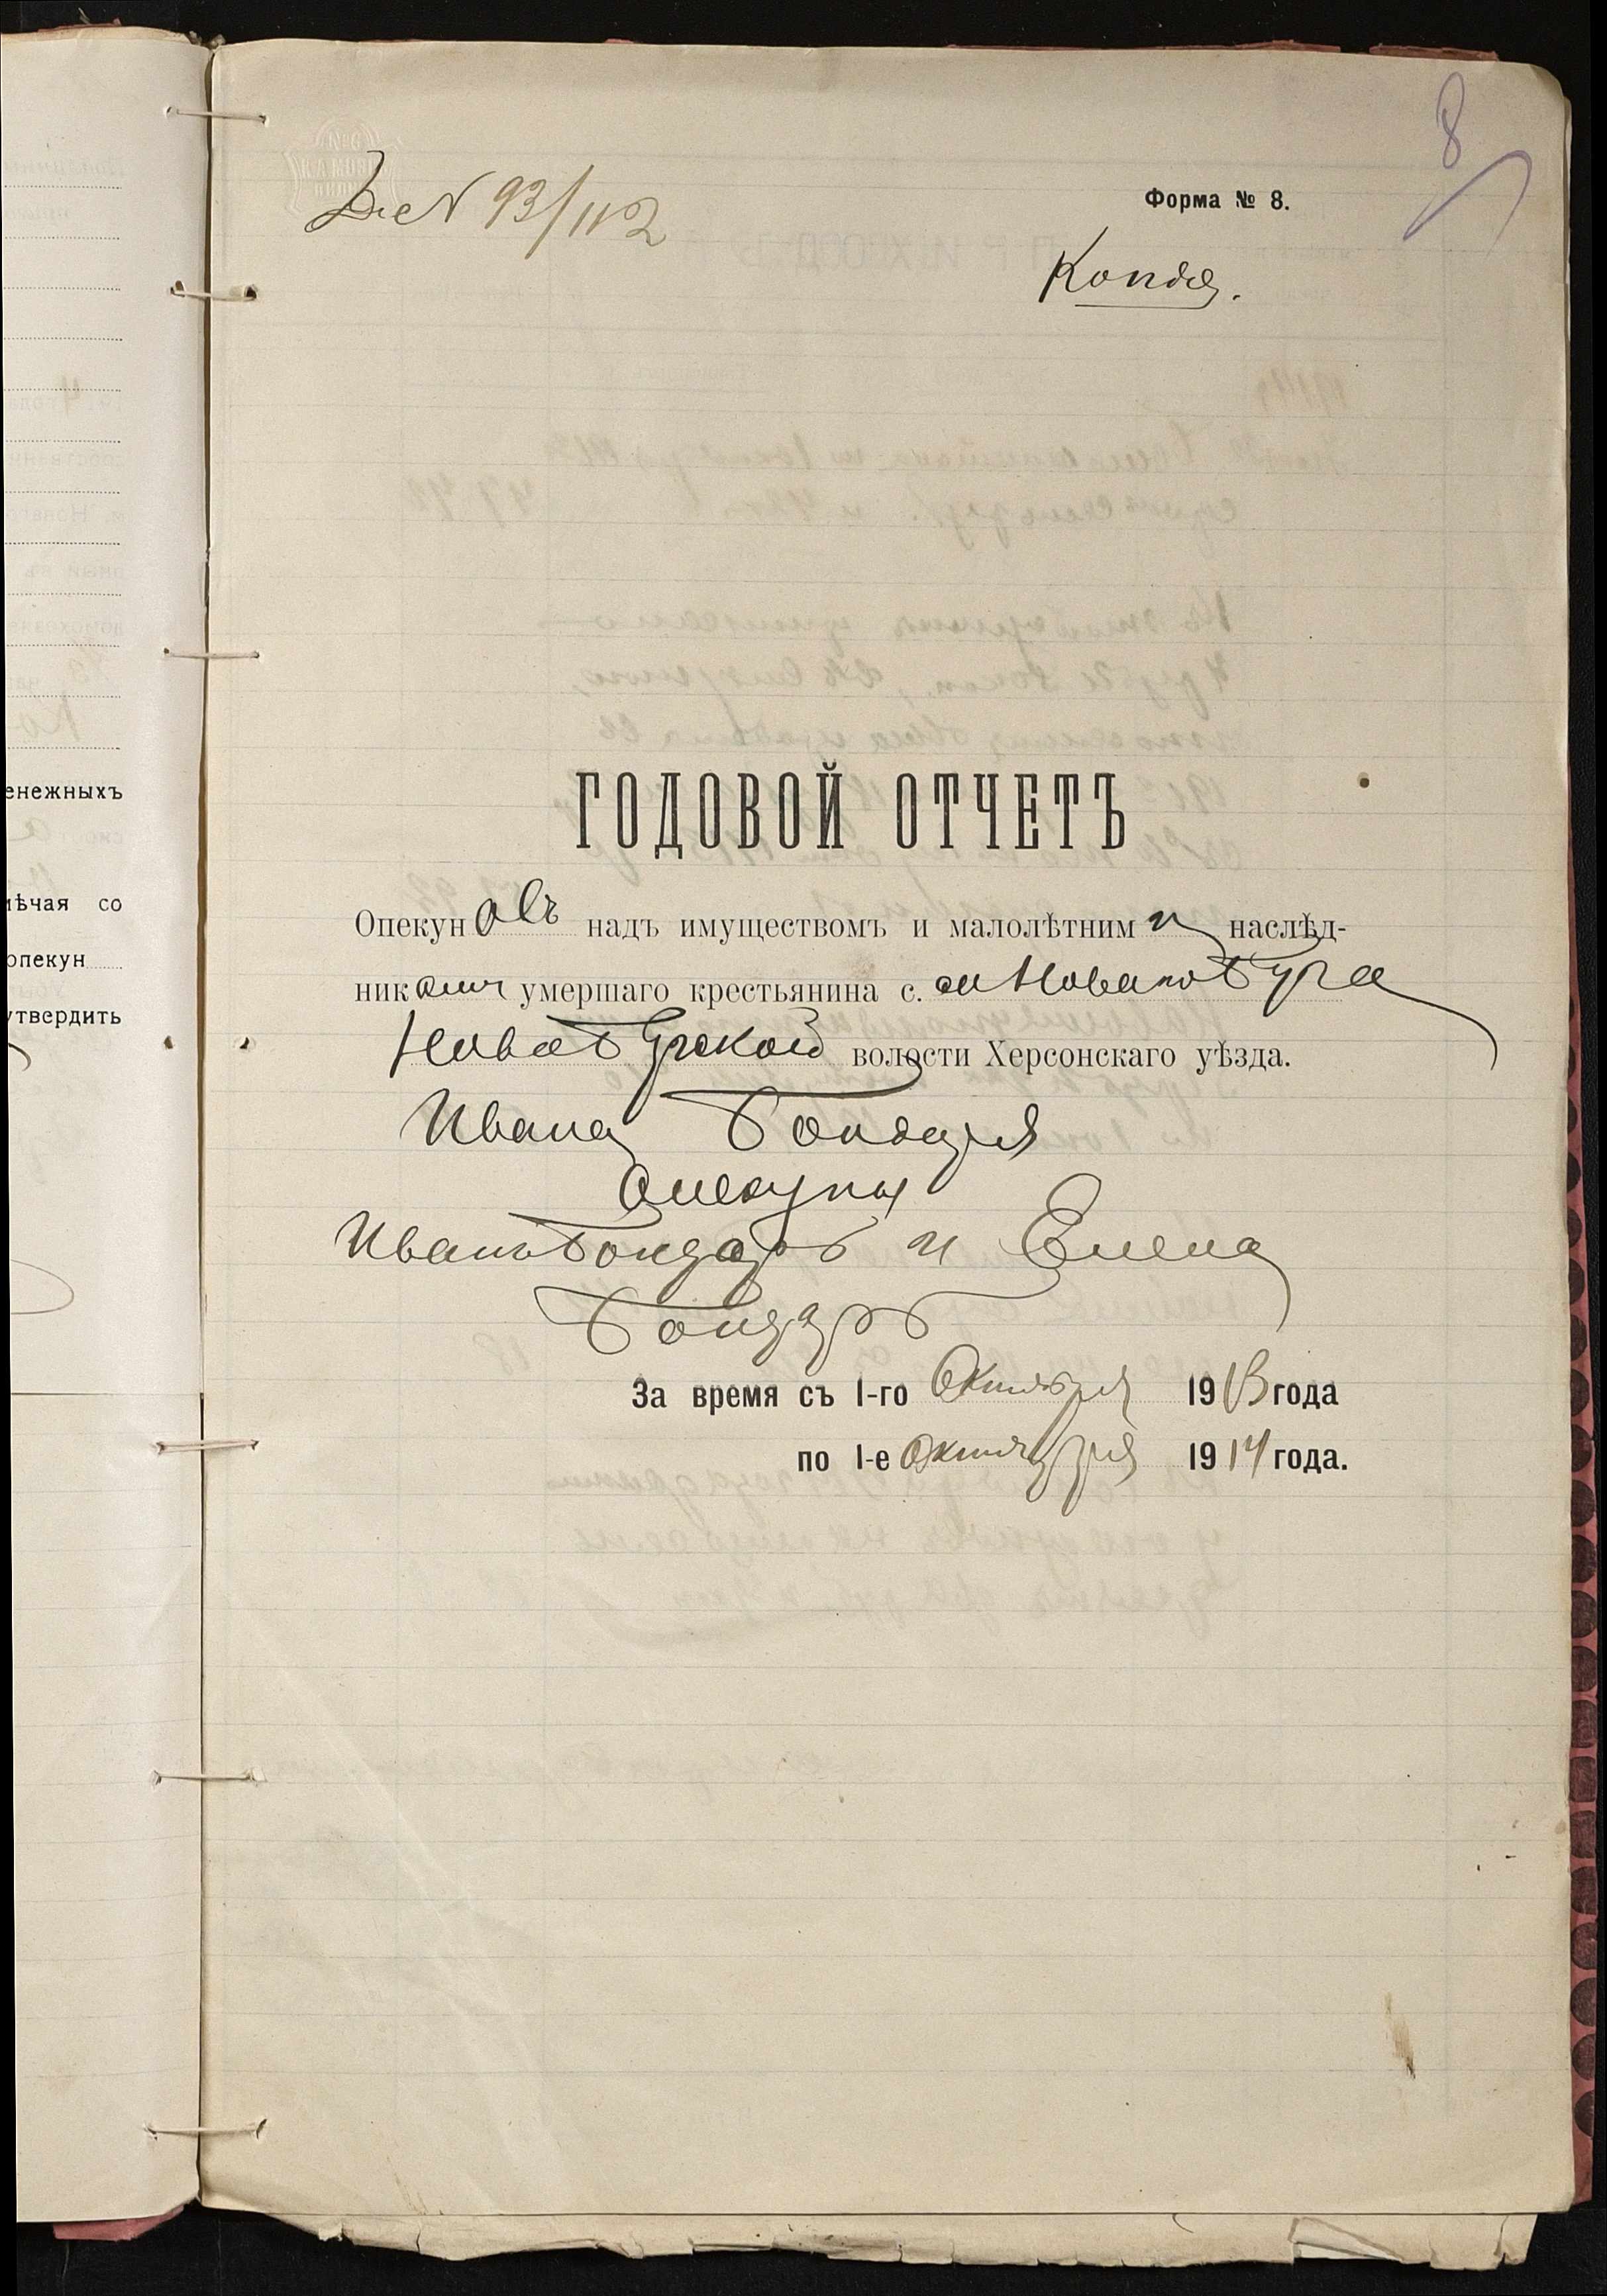 8
Д. № 93/112
Форма № 8.
Копія.
ГОДОВОЙ ОТЧЕТЪ
Опекуновъ надъ имуществомъ и малолѣтними наслѣд-
никами умершаго крестьянина с. Новаго Буга
Новобугской волости Херсонскаго уѣзда.
Ивана Бондаря
Опекуны
Иванъ Бондарь и Елена
Бондарь
За время съ 1-го Октября 1913 года
по 1-е Октября 1914 года.
енежныхъ
мѣчая со
опекун
утвердить